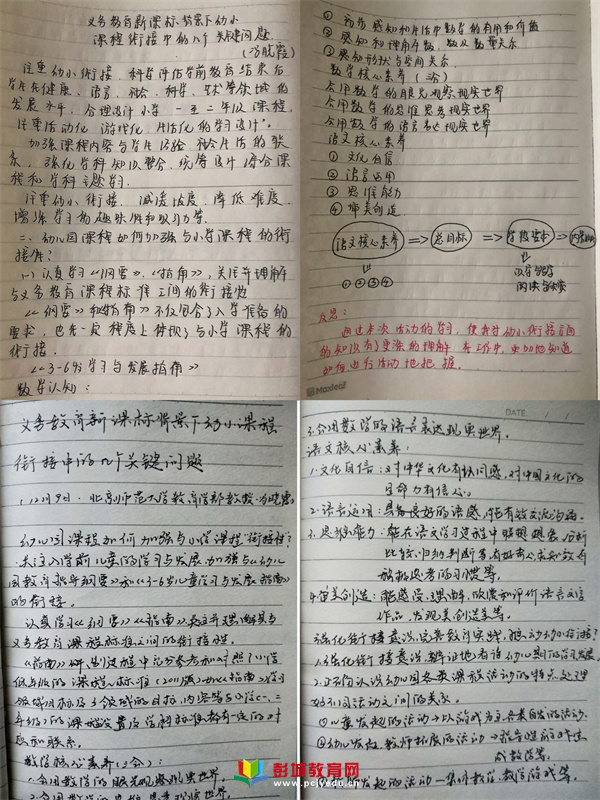 义务教育新课标背景下幼小
课程衔接中的几个关键问题
(冯晓霞)
注重幼小衔接,科学评估学前教育结束后
学生在健康、语言、社会、科学、艺术等领域的
发展水平,合理设计小学一至二年级课程,
注重活动化、游戏化、生活化的学习设计"。
加强课程内容与学生经验、社会生活的联
系,强化学科知识整合,统筹设计综合课
程和学科主题学习。
注重幼小衔接,减缓坡度,降低难度,
增添学习的趣味性和吸引力等。
二、幼儿园课程如何加强与小学课程的衔
接性?
(一)认真学习《纲要》、《指南》,关注并理解
与义务教育课程标准之间的衔接性
《纲要》和《指南》不仅包含了入学准备的
要求,也在一定程度上体现了与小学课程的
衔接。
《3-6岁学习与发展指南》
数学认知:
① 初步感知和生活中数学的有用和有趣
② 感知和理解数、数及数量关系
③ 感知形状与空间关系
数学核心素养(三会)
会用数学的眼光观察现实世界
会用数学的思维思考现实世界
会用数学的语言表达现实世界
语文核心素养
① 文化自信
② 语言运用
③ 思维能力
④ 审美创造
语文核心素养 ⇒ 总目标 ⇒ 学段要求 ⇒
①②③④
识字与写字
阅读与
反思:
通过本次活动的学习,使我对幼小衔接方面
的知识有了更深的理解,在工作中,更加地知道
如何进行活动地把握。
Maxleaf
义务教育新课标背景下幼小课程
衔接中的几个关键问题
(12月9日·北京师范大学教育学部教授·冯晓霞)
幼儿园课程如何加强与小学课程衔接性?
关注入学前儿童的学习与发展,加强与《幼儿
园教育指导纲要》和《3-6岁儿童学习与发展指南》
的衔接。
认真学习《纲要》《指南》关注并理解其与
义务教育课程标准之间的衔接性。
《指南》研制过程中充分参考和对照了小学
低年级的课程标准(2011版)
领域目标及子领域的目标,内容等与小学一、二
年级的课程设置及学科标准都有一定的对
应和联系。
数学核心素养(三会):
1.会用数学的眼光观察现实世界。
2.会用数学的思维思考现实世界
DATE / /
3.会用数学的语言表达现实世界。
语文核心素养:
1.文化自信:对中华文化有认同感,对中国文化的
生命力有信心。
2.语言运用:具备良好的语感,能有效交流沟通。
3.思维能力:能在语文学习过程中联想想象、分析
比较、归纳判断等,有好奇心求知欲,有
积极思考的习惯等。
4.审美创造:能感受、理解、欣赏和评价语言文字
作品,发现美创造美等。
强化衔接意识,完善教育实践,推动幼小衔接?
1.强化衔接意识,辩证地看待幼儿期的学习发展。
2.正确认识幼儿园各类课程活动的特点,处理
好不同活动之间的关系。
①儿童发起的活动→以游戏为主,各类自发的活动。
②幼儿发起、教师拓展的活动→
教学等。
发起的活动→集体教学、教学游戏等。
彭城教育网
www.pcjyedu.cn